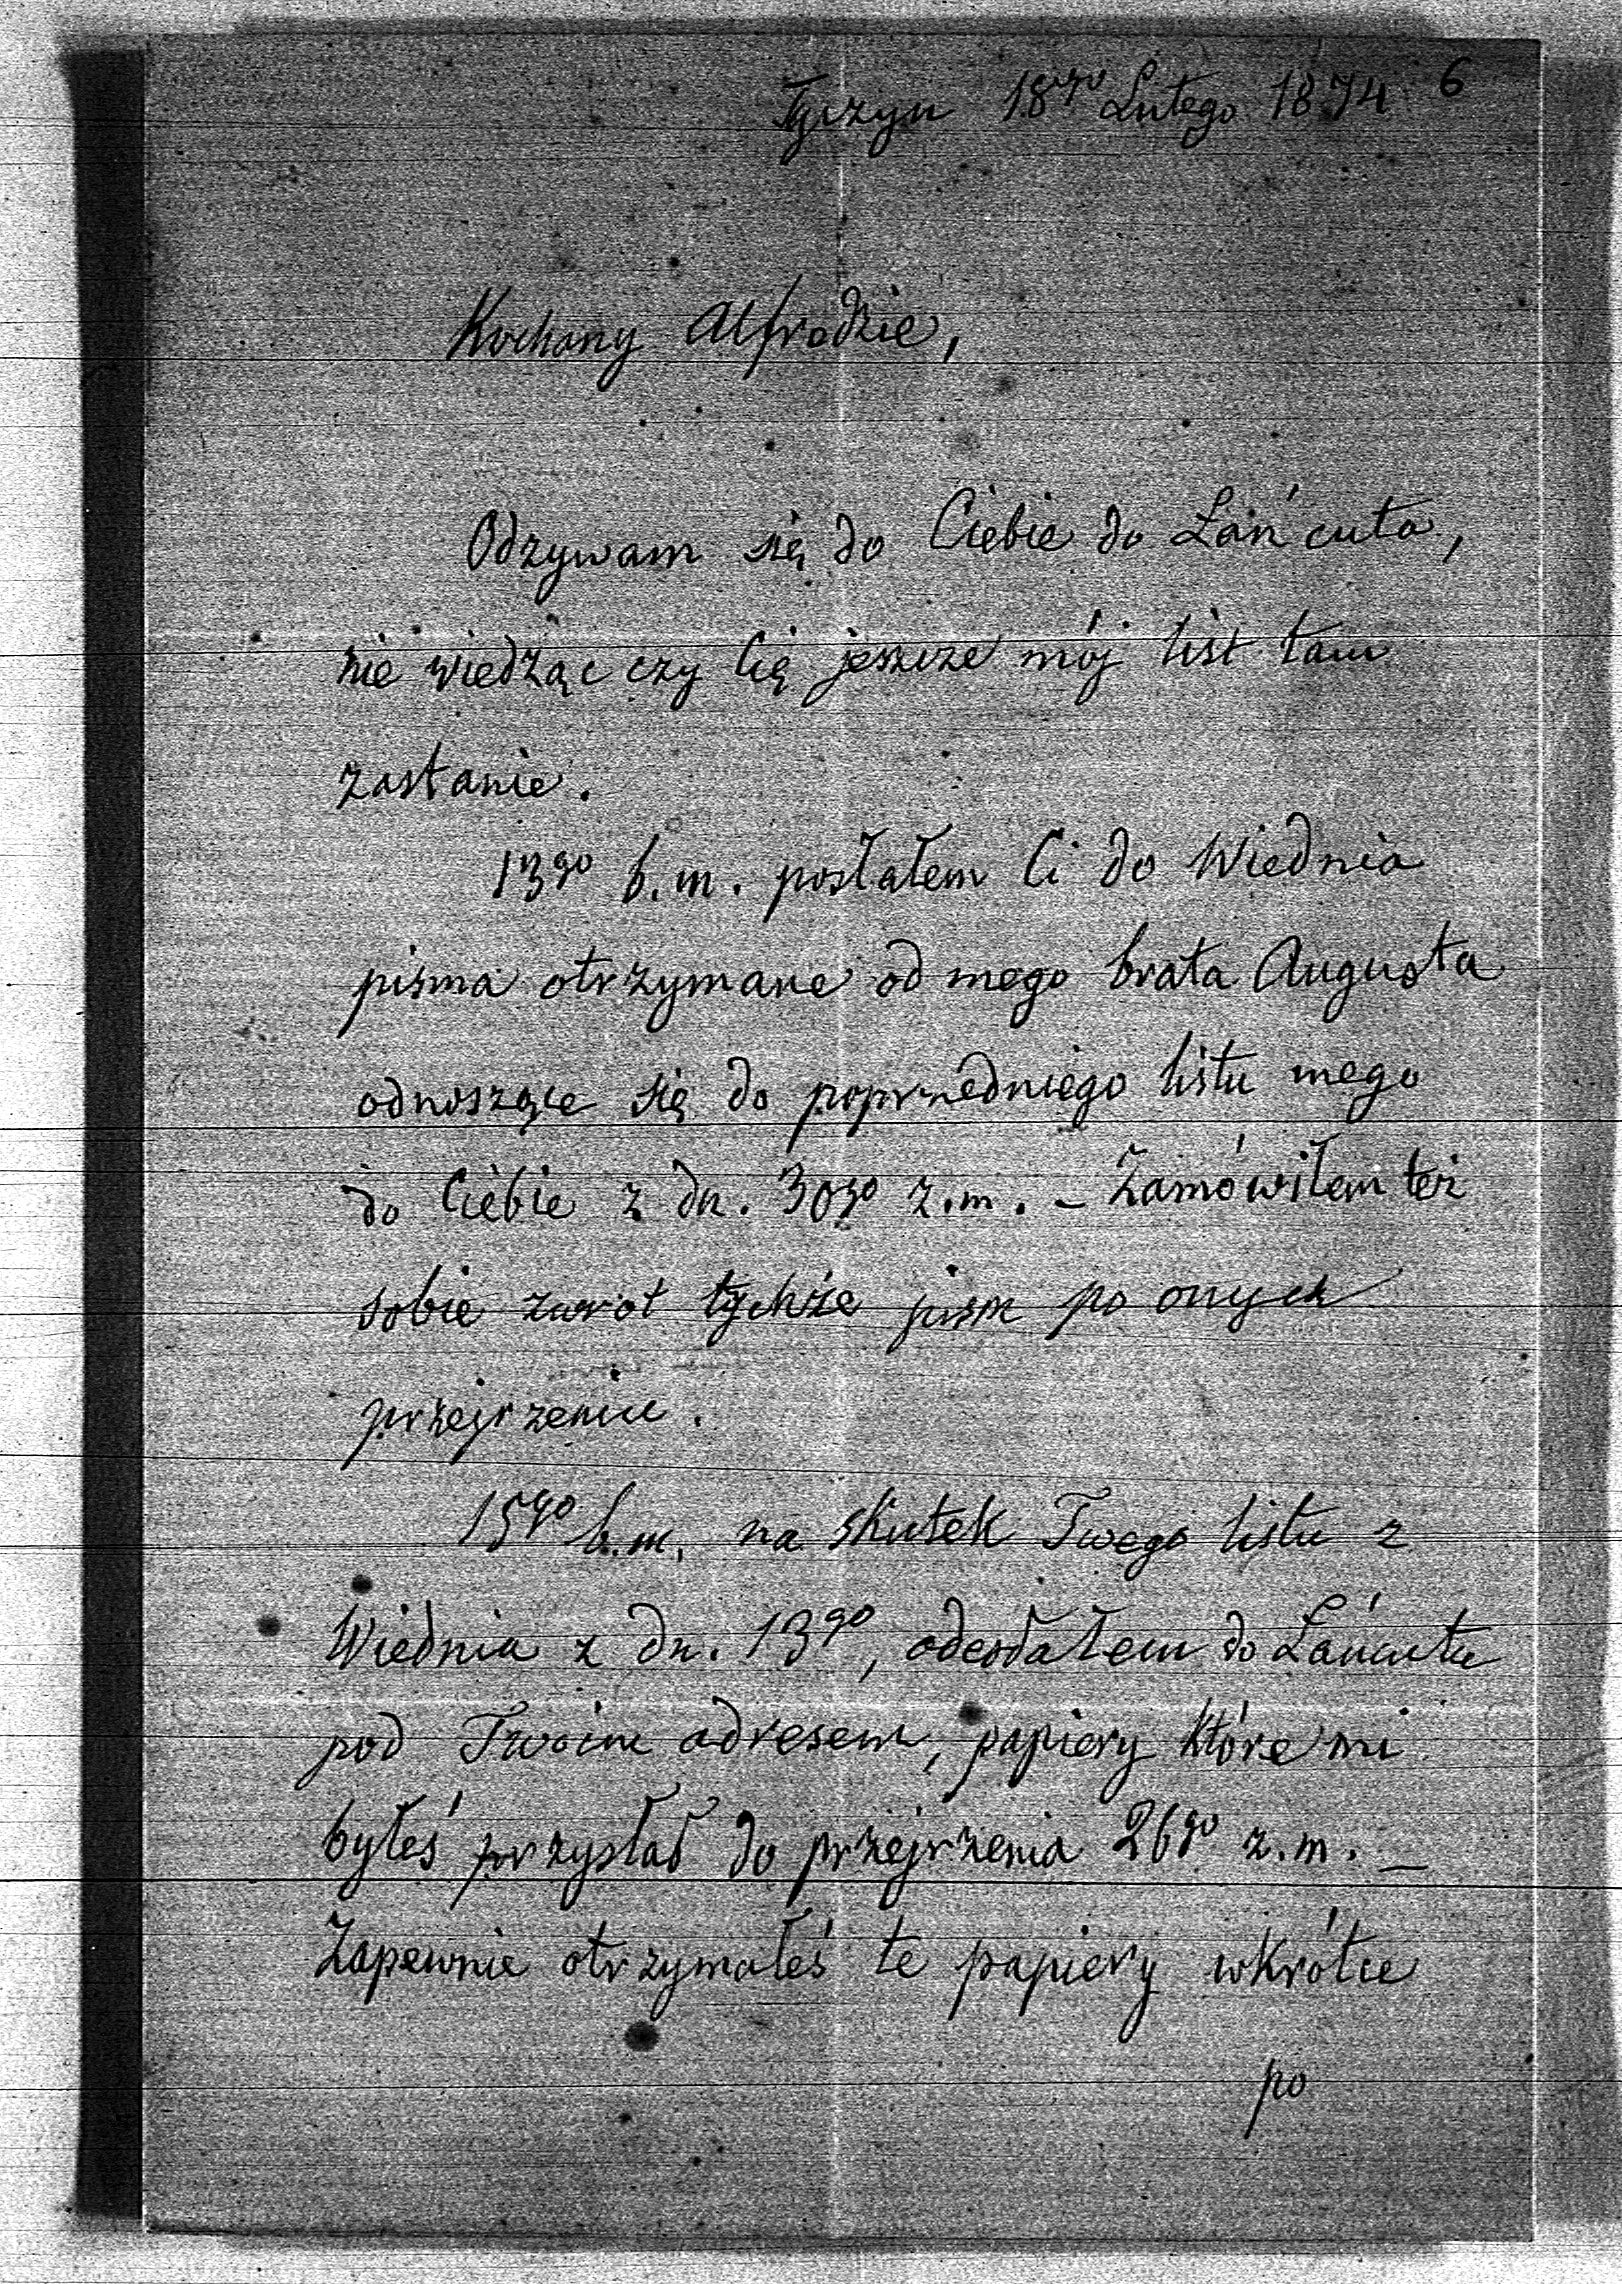 Tyczyn 18go Lutego 1874 6
Kochany Alfrodzie,
Odzywam się do Ciebie do Łańcuta,
nie wiedząc czy Cię jeszcze mój list tam
zastanie.
13go b.m. posłałem Ci do Wiednia
pisma otrzymane od mego brata Augusta
odnoszące się do poprzedniego listu mego
do Ciebie z dn. 30go z.m. – Zamówiłem też
sobie zwrot tychże pism po onych
przejrzeniu.
15go b.m. na skutek Twego listu z
Wiednia z dn. 13go, odesłałem do Łańcuta
pod Twoim adresem, papiery które mi
byłeś przysłał do przejrzenia 26go z.m. –
Zapewnie otrzymałeś te papiery wkrótce
po